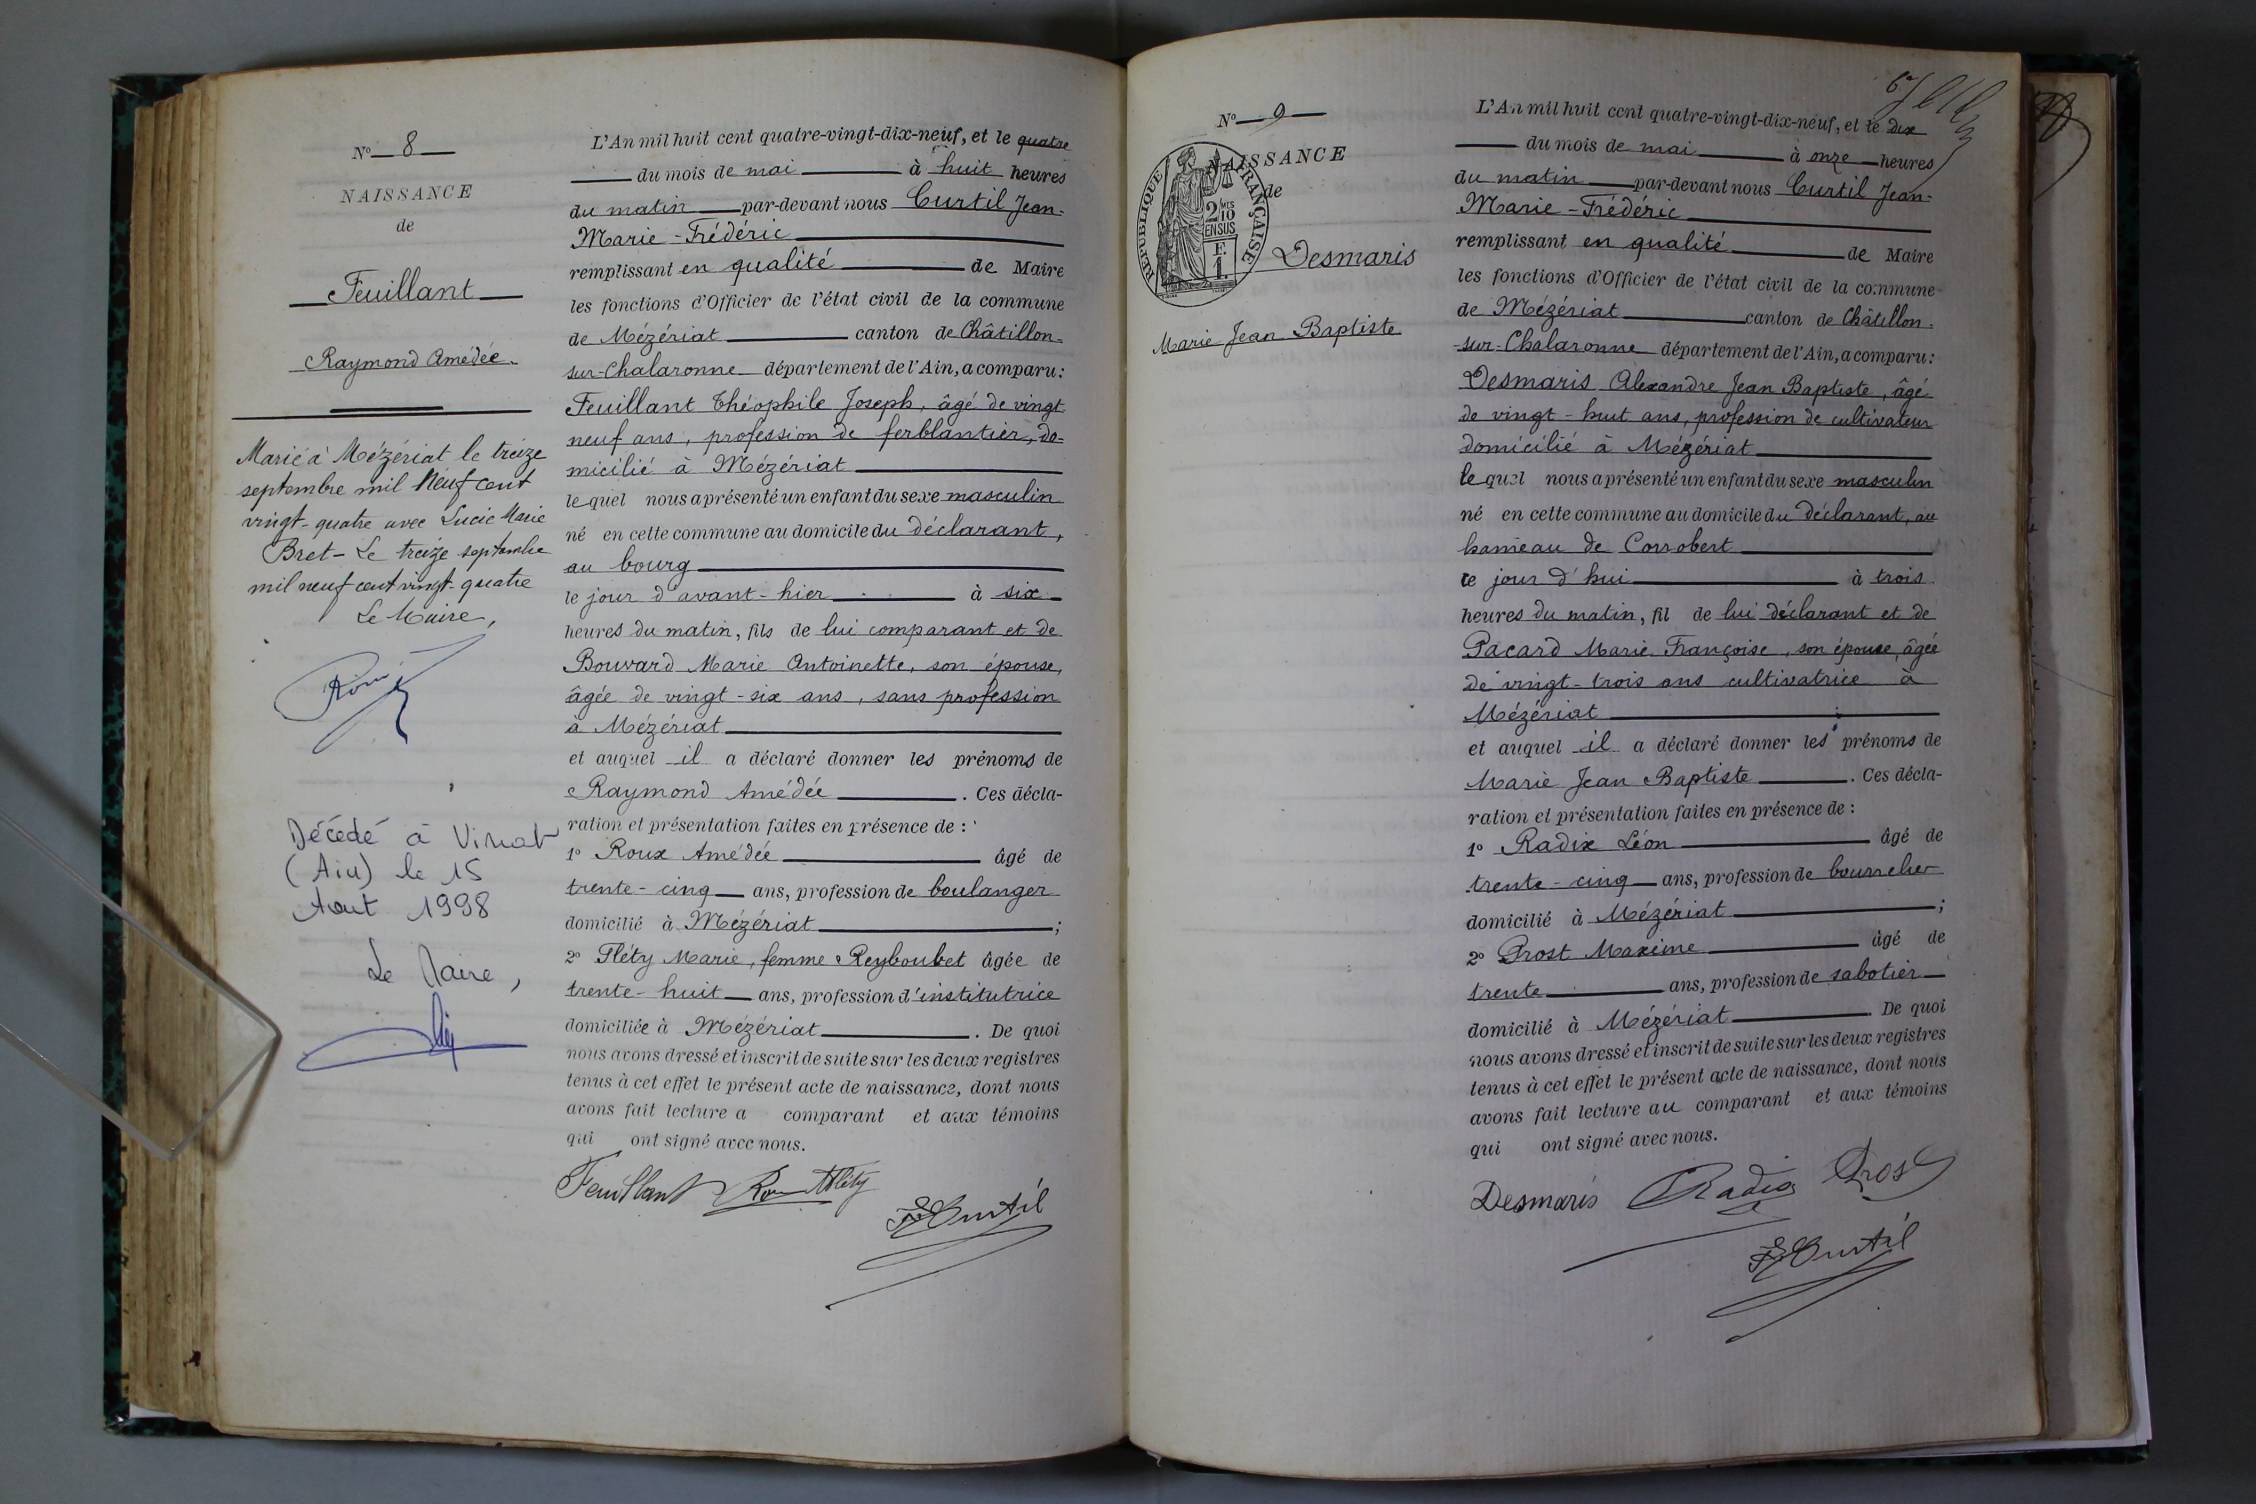 N° 8
NAISSANCE
de
Feuillant
Raymond Amédée
Marié à Mézériat le treize
septembre mil Neuf cent
vingt-quatre avec Lucie Marie
Bret - Le treize septembre
mil neuf cent vingt-quatre
Le Maire,
Décédé à Viriat
(Ain) le 15
Aout 1998
Le Maire,
L'An mil huit cent quatre-vingt-dix-neuf, et le quatre
du mois de mai à huit heures
du matin par-devant nous Curtil Jean-
Marie-Frédéric
remplissant en qualité de Maire
les fonctions d'Officier de l'état civil de la commune
de Mézériat canton de Châtillon-
sur-Chalaronne département de l'Ain, a comparu:
Feuillant Théophile Joseph, âgé de vingt
neuf ans, profession de ferblantier, do-
micilié à Mézériat
lequel nous a présenté un enfant du sexe masculin
né en cette commune au domicile du déclarant,
au bourg
le jour d'avant-hier à six
heures du matin, fils de lui comparant et de
Bouvard Marie Antoinette, son épouse,
âgée de vingt-six ans, sans profession
à Mézériat
et auquel il a déclaré donner les prénoms de
Raymond Amédée. Ces décla-
ration et présentation faites en présence de :
1° Roux Amédée âgé de
trente-cinq ans, profession de boulanger
domicilié à Mézériat ;
2° Fléty Marie, femme Reyboubet âgée de
trente-huit ans, profession d'institutrice
domiciliée à Mézériat. De quoi
nous avons dressé et inscrit de suite sur les deux registres
tenus à cet effet le présent acte de naissance, dont nous
avons fait lecture a comparant et aux témoins
qui ont signé avec nous.
Feuillant Roux M Fléty
F Curtil
N° 9
NAISSANCE
de
RÉPUBLIQUE FRANÇAISE
2 MES
10
EN SUS
F.
1.
Desmaris
Marie Jean Baptiste
L'An mil huit cent quatre-vingt-dix-neuf, et le dix
du mois de mai à onze heures
du matin par-devant nous Curtil Jean-
Marie-Frédéric
remplissant en qualité de Maire
les fonctions d'Officier de l'état civil de la commune
de Mézériat canton de Châtillon-
sur-Chalaronne département de l'Ain, a comparu:
Desmaris Alexandre Jean Baptiste, âgé
de vingt-huit ans, profession de cultivateur
domicilié à Mézériat
lequel nous a présenté un enfant du sexe masculin
né en cette commune au domicile du déclarant, au
hameau de Corrobert
ce jour d'hui à trois
heures du matin, fil de lui déclarant et de
Pacard Marie Françoise, son épouse, âgée
de vingt-trois ans cultivatrice à
Mézériat
et auquel il a déclaré donner les prénoms de
Marie Jean Baptiste. Ces décla-
ration et présentation faites en présence de :
1° Radix Léon âgé de
trente-cinq ans, profession de bourrelier
domicilié à Mézériat ;
2° Prost Maxime âgé de
trente ans, profession de sabotier
domicilié à Mézériat. De quoi
nous avons dressé et inscrit de suite sur les deux registres
tenus à cet effet le présent acte de naissance, dont nous
avons fait lecture au comparant et aux témoins
qui ont signé avec nous.
Desmaris Radix Prost
F Curtil